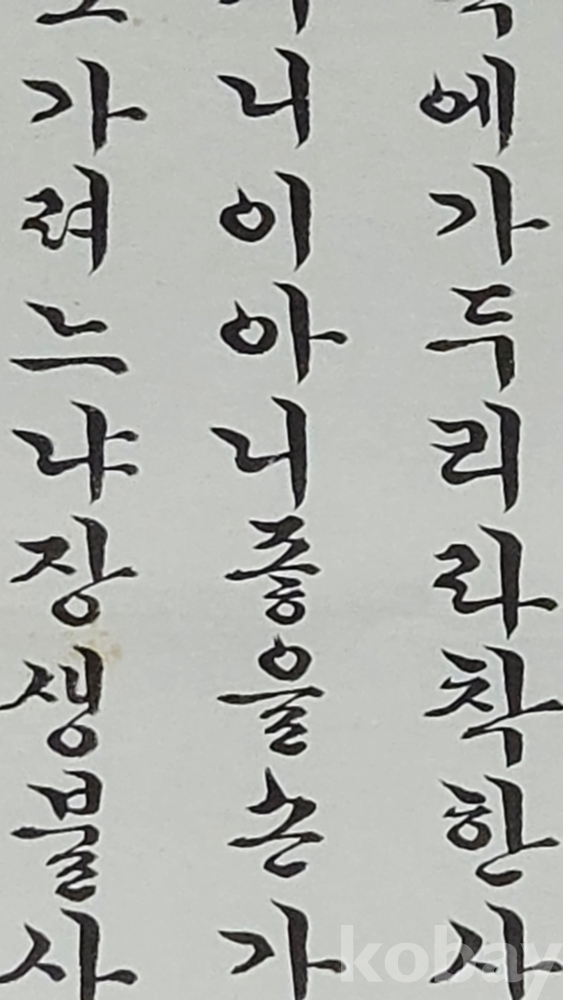 에가두리라착한사
니이아니좋을손가
가려느냐장생불사
kobay